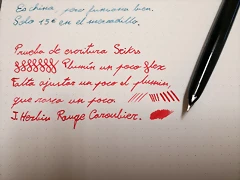 Es china, pero funciona bien.
Sólo 15€ en el mercadillo.
Prueba de escritura Seikrs
Plumín un poco flex
Falta ajustar un poco el plumín,
que rasca un poco.
J. Herbin Rouge Caroubier.